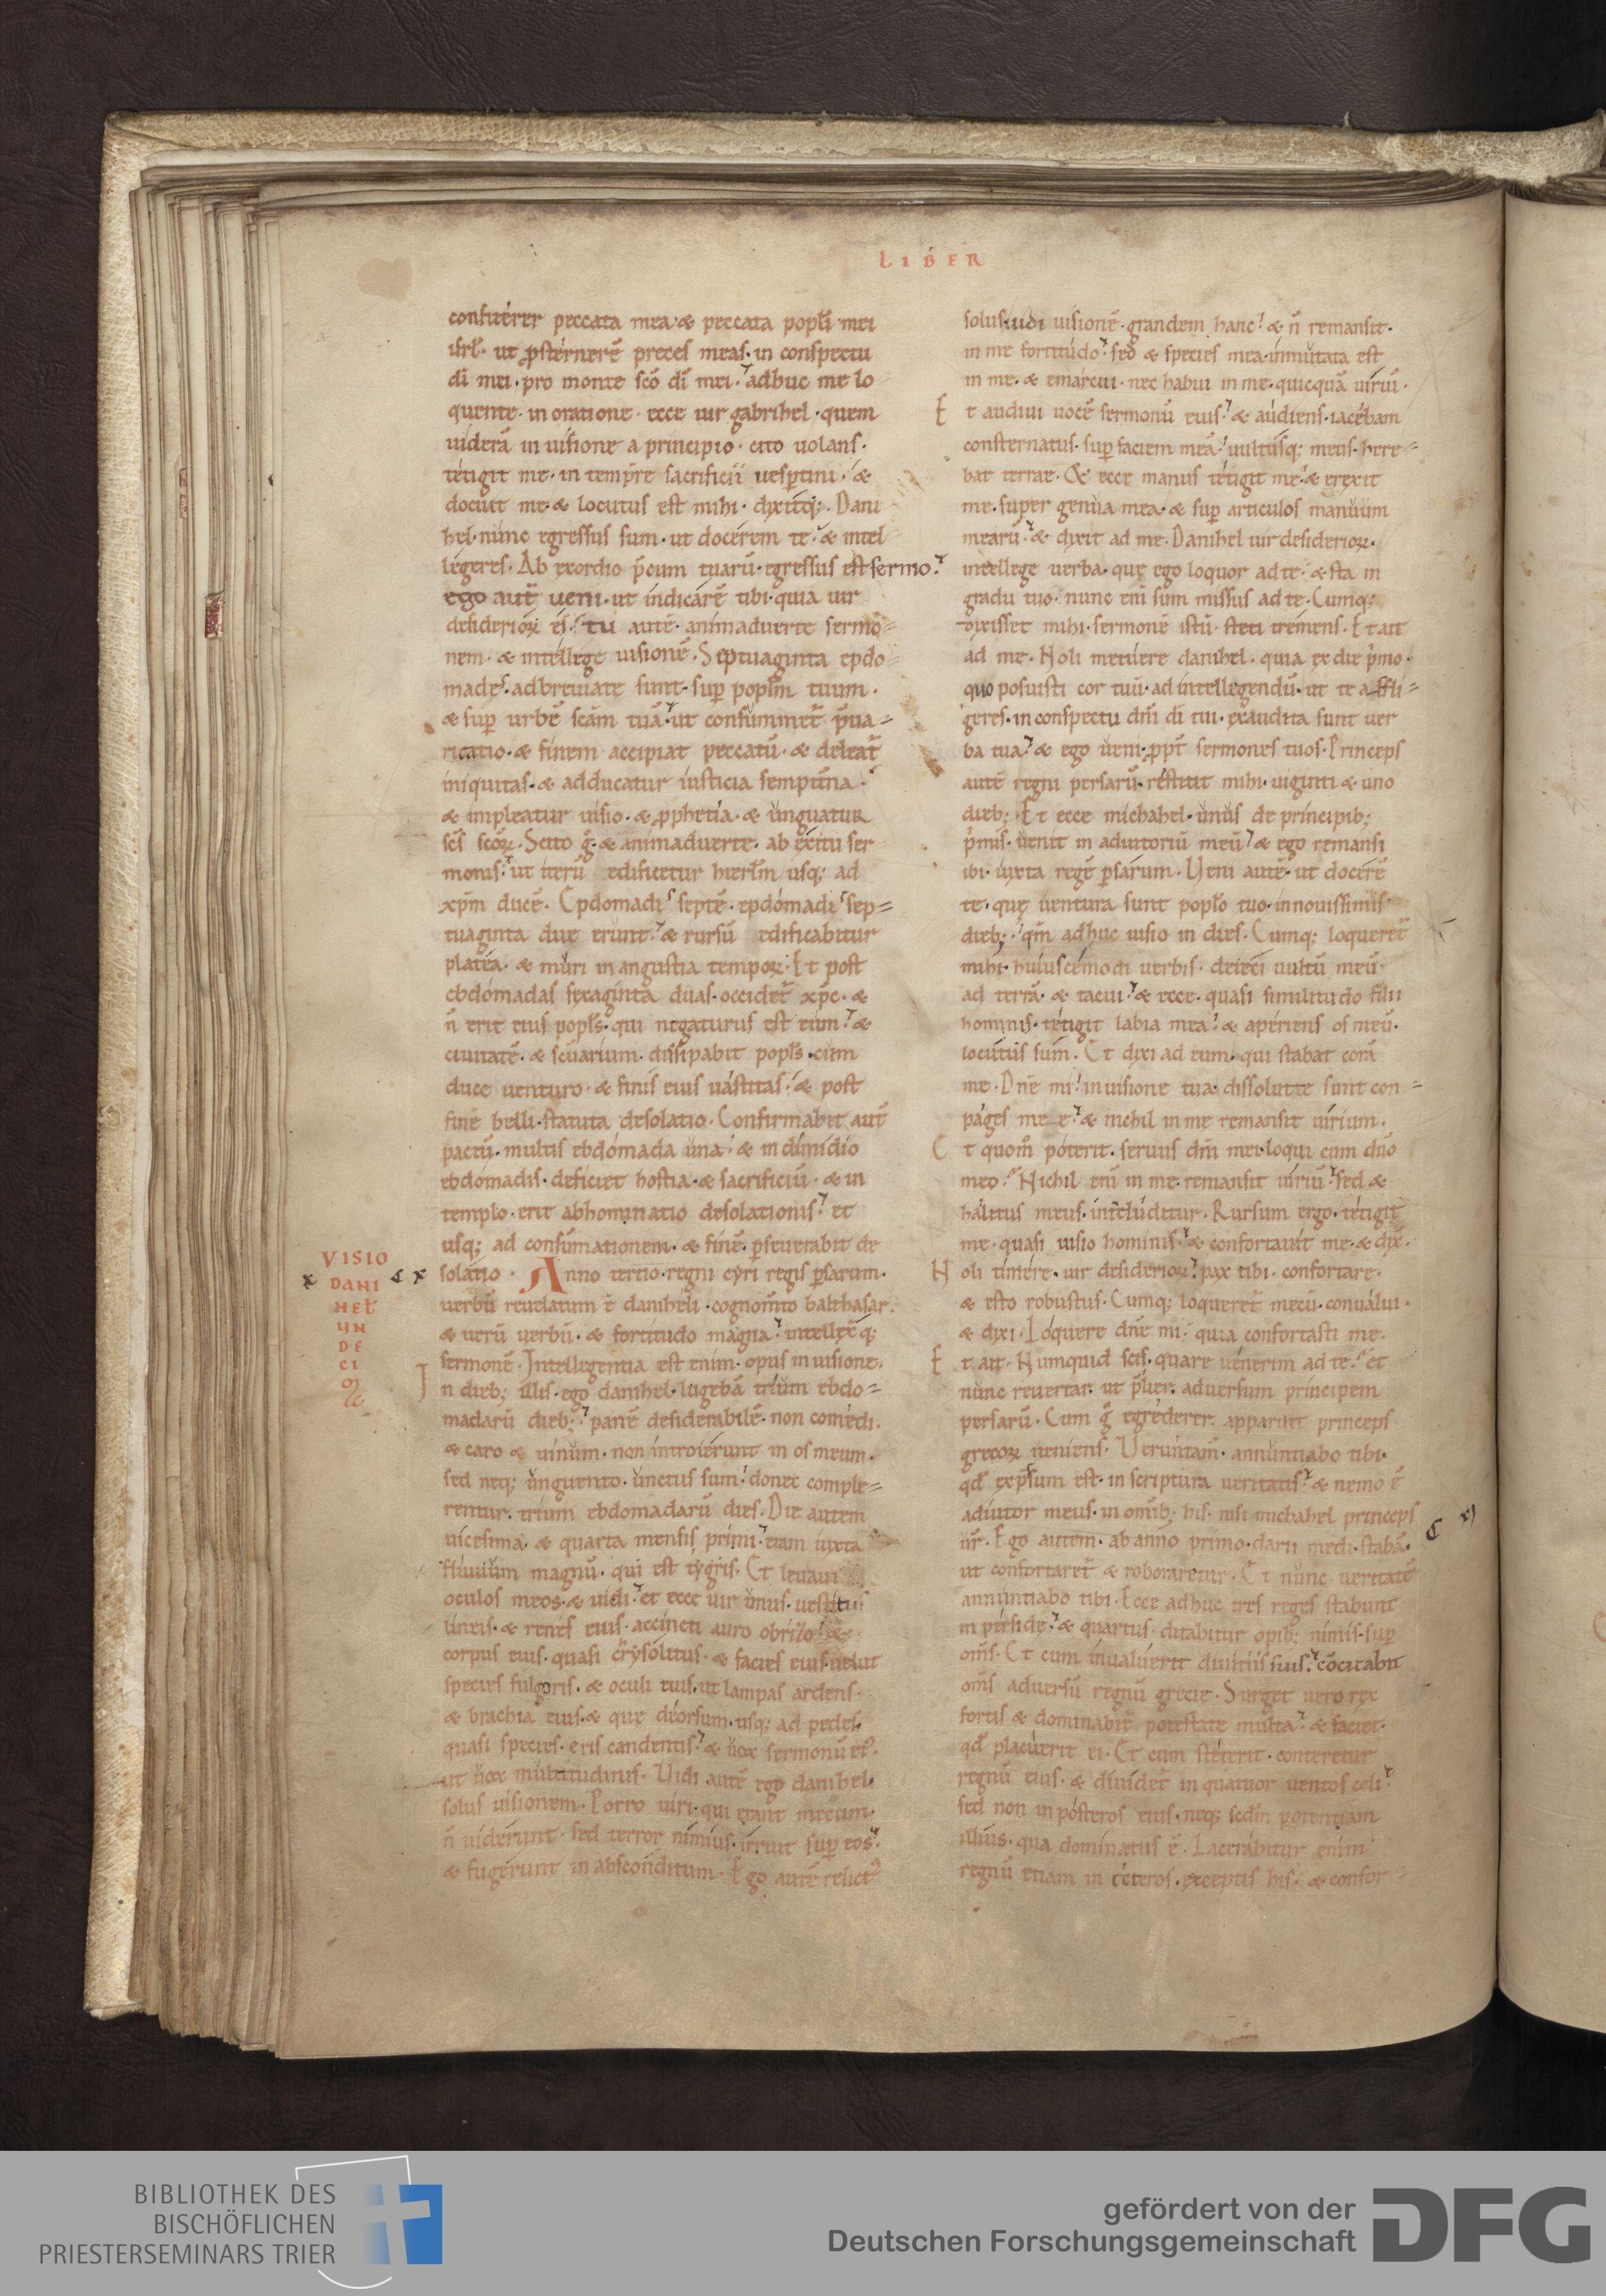 LIBER
confiterer peccata mea & peccata popłi mei
isrł. ut ꝓsternerē preces meas. in conspectu
dī mei. pro monte scō dī mei. adhuc me lo
quente. in oratione. ecce uir gabrihel. quem
uiderā in uisione a principio. cito uolans.
tetigit me. in tempr̄e sacrificii uesꝑtini. &
docuit me. & locutus est mihi. dixitq;. Dani
hel. nunc egressus sum. ut docerem te. & intel
legeres. Ab exordio p̄cum tuarū. egressus est sermo.
ego aut̄ ueni. ut indicarē tibi. quia uir
desiderioꝝ es. tu autē animaduerte sermo=
nem. & intellege uisionē. Septuaginta epdo=
madę. adbreuiatę sunt. suꝑ popłm tuum.
& suꝑ urbē scām tuā. ut consummet̄ p̄ua=
ricatio. & finem accipiat peccatū. & deleat̄
iniquitas. & adducatur iusticia sempit̄na.
& impleatur uisio. & ꝓphetia. & unguatur
scs̄ scōꝝ. Scito g̊. & animaduerte. ab exitu ser
monis. ut iterū edificetur hierłm usq; ad
xp̄m ducē. Epdomadis septē. epdomadis sep=
tuaginta duę erunt. & rursū edificabitur
platea. & muri in angustia tempoꝝ. Et post
ebdomadas sexaginta duas. occidet̄ xp̄c. &
n̄ erit eius popłs. qui negaturus est eum. &
ciuitatē. & scūarium. dissipabit popłs. cum
duce uenturo. & finis eius uastitas. & post
finē belli. statuta desolatio. Confirmabit autē
pactū. multis ebdomada una. & in dimidio
ebdomadis. deficiet hostia. & sacrificiū. & in
templo. erit abhominatio desolationis. et
usq; ad consūmationem. & finē. ꝑseuerabit de
solatio. Anno tertio. regni cyri regis ꝑsarum.
VISIO
DANI
HEŁ
UN
DE
CI
MA
uerbū reuelatum ē daniheli. cognom̄to balthasar.
& uerū uerbū. & fortitudo magna. intellexq;
sermonē. Intellegentia est enim. opus in uisione.
In dieb; illis. ego danihel. lugebā trium ebdo=
madarū dieb;. panē desiderabilē. non comedi.
& caro & uinum. non introierunt in os meum.
sed neq; unguento. unctus sum. donec comple=
rentur. trium ebdomadarū dies. Die autem
uicesima. & quarta mensis primi. eram iuxta
fluuium magnū. qui est tygris. Et leuaui
oculos meos. & uidi. et ecce uir unus. uestitus
lineis. & renes eius. accincti auro obrizo. &
corpus eius. quasi crysolitus. & facies eius. uelut
species fulgoris. & oculi eius. ut lampas ardens.
& brachia eius. & quę deorsum. usq; ad pedes.
quasi species. eris candentis. & uox sermonū ei9.
ut uox multitudinis. Uidi autē ego danihel.
solus uisionem. Porro uiri. qui erant mecum.
n̄ uiderunt. sed terror nimius. irruit suꝑ eos.
& fugerunt in absconditum. Ego autē relict9
solus. uidi uisionē. grandem hanc. & n̄ remansit.
in me fortitudo. sed & species mea. inmutata est
in me. & emarcui. nec habui in me. quicquā uiriū.
Et audiui uocē sermonū eius. & audiens. iacebam
consternatus. suꝑ faciem meā. uultusq; meus. here=
bat terrae. & ecce manus tetigit me. & erexit
me. super genua mea. & suꝑ articulos manuum
mearū. & dixit ad me. Danihel uir desiderioꝝ.
intellege uerba. quę ego loquor ad te. & sta in
gradu tuo. nunc eni sum missus ad te. Cumq;
dixisset mihi. sermonē istū. steti tremens. Et ait
ad me. Noli metuere danihel. quia ex die p̄mo.
quo posuisti cor tuū. ad intellegendū. ut te affli=
geres. in conspectu dm̄i dī tui. exaudita sunt uer
ba tua. & ego ueni. ꝓpt̄ sermones tuos. Princeps
autē regni persarū. restitit mihi. uiginti & uno
dieb;. Et ecce michahel. unus de principib;
p̄mis. uenit in adiutoriū meū. & ego remansi
ibi. iuxta regē ꝑsarum. Ueni autē. ut docerē
te. quę uentura sunt popło tuo. in nouissimis
dieb;. qm̄ adhuc uisio in dies. Cumq; loqueret̄
mihi. huiuscemodi uerbis. deieci uultū meū.
ad terrā. & tacui. & ecce. quasi similitudo filii
hominis. tetigit labia mea. & aperiens os meū.
locutus sum. Et dixi ad eum. qui stabat corā
me. Dn̄e mi. in uisione tua. dissolutę sunt con=
pages meę. & nichil in me remansit uirium.
Et quom̄ poterit. seruus dn̄i mei. loqui cum dn̄o
meo. Nichil eni in me. remansit uiriū. sed &
halitus meus. intercluditur. Rursum ergo. tetigit
me. quasi uisio hominis. & confortauit me. & dix̄.
Noli timere. uir desiderioꝝ. pax tibi. confortare.
& esto robustus. Cumq; loqueret̄ mecū. conualui.
& dixi. Loquere dn̄e mi. quia confortasti me.
Et ait. Numquid scis. quare uenerim ad te. et
nunc reuertar. ut p̄lier. aduersum principem
persarū. Cum g̊ egrederer. apparuit princeps
grecoꝝ ueniens. Ueruntam̄. annuntiabo tibi.
qd̄ exp̄ssum est. in scriptura ueritatis. & nemo ē
adiutor meus. in omīb; his. nisi michahel princeps
ur̄. Ego autem. ab anno primo. darii medi. stabā.
ut confortaret̄ & roboraretur. Et nunc ueritatē
annuntiabo tibi. Ecce adhuc tres reges stabunt
in perside. & quartus. ditabitur opib; nimis. suꝑ
om̄s. Et cum inualuerit diuitiis suis. cōcitabit
om̄s aduersū regnū grecię. Surget uero rex
fortis & dominabit̄ potestate multa. & faciet.
qd̄ placuerit ei. Et cum steterit. conteretur
regnū eius. & diuidet̄ in quatuor uentos celi.
sed non in posteros eius. neq; sedm̄ potentiam
illius. qua dominatus ē. Lacerabitur enim
regnū etiam in ceteros. exceptis his. & confor=
BIBLIOTHEK DES
BISCHÖFLICHEN
PRIESTERSEMINARS TRIER
gefördert von der
Deutschen Forschungsgemeinschaft
DFG